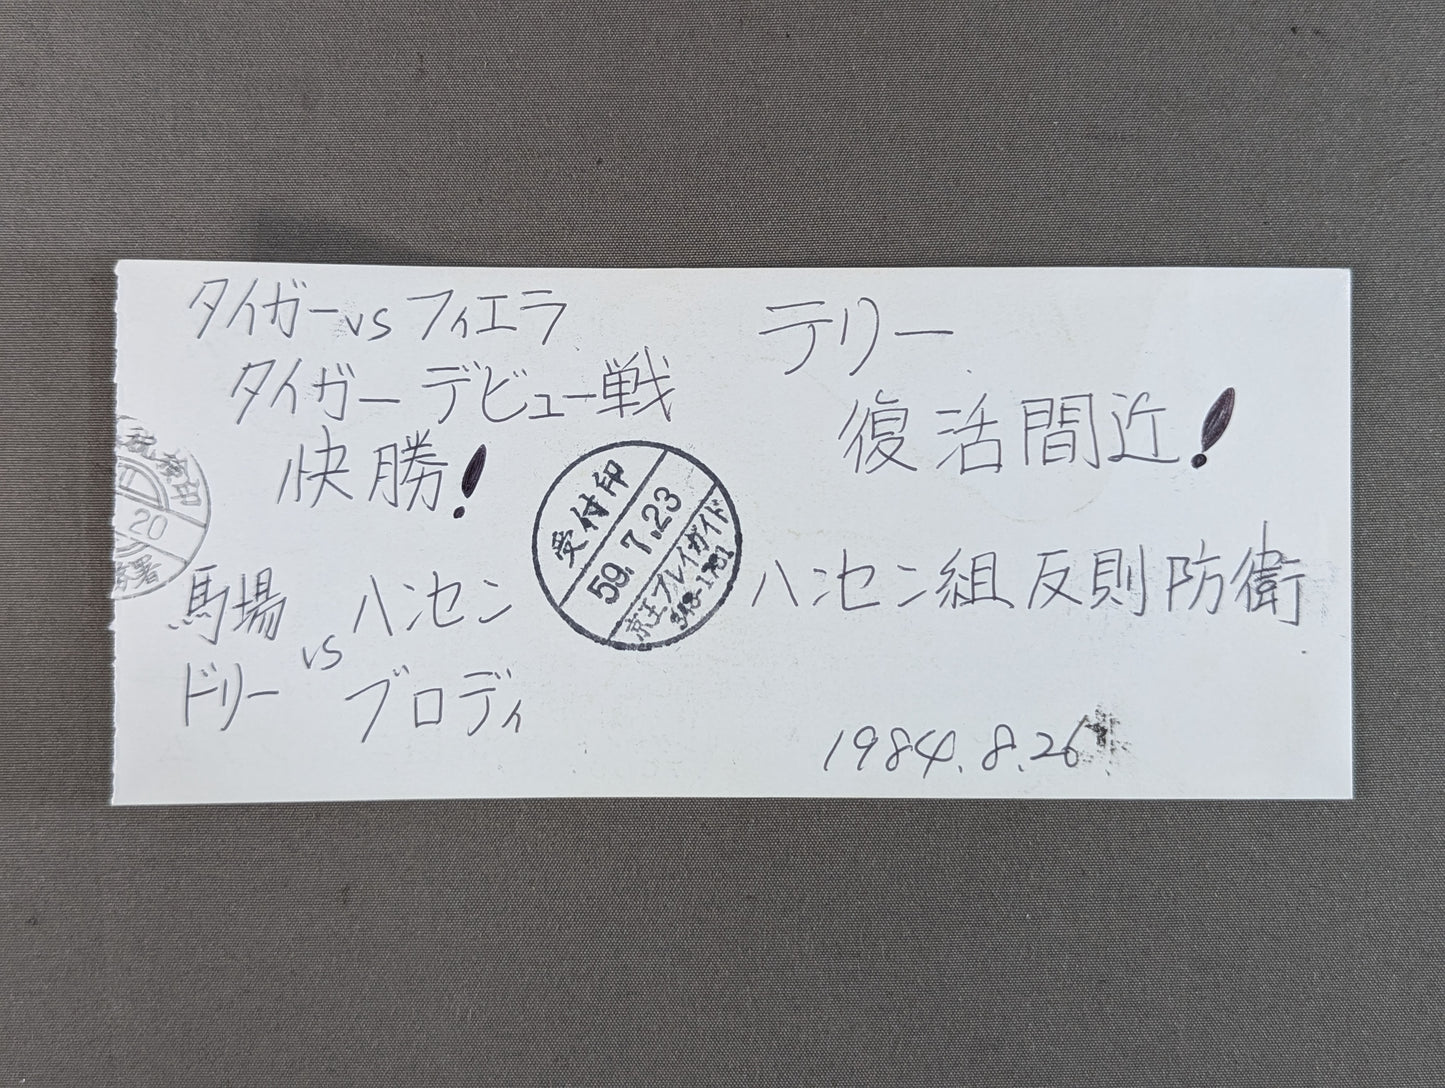 タイガーvsフィエラ
タイガーデビュー戦
快勝!
馬場 ハンセン
vs
ドリー ブロディ
テリー
復活間近!
ハンセン組反則防衛
1984.8.26
受付印
59.7.23
京王プレイガイド
検印
20
署